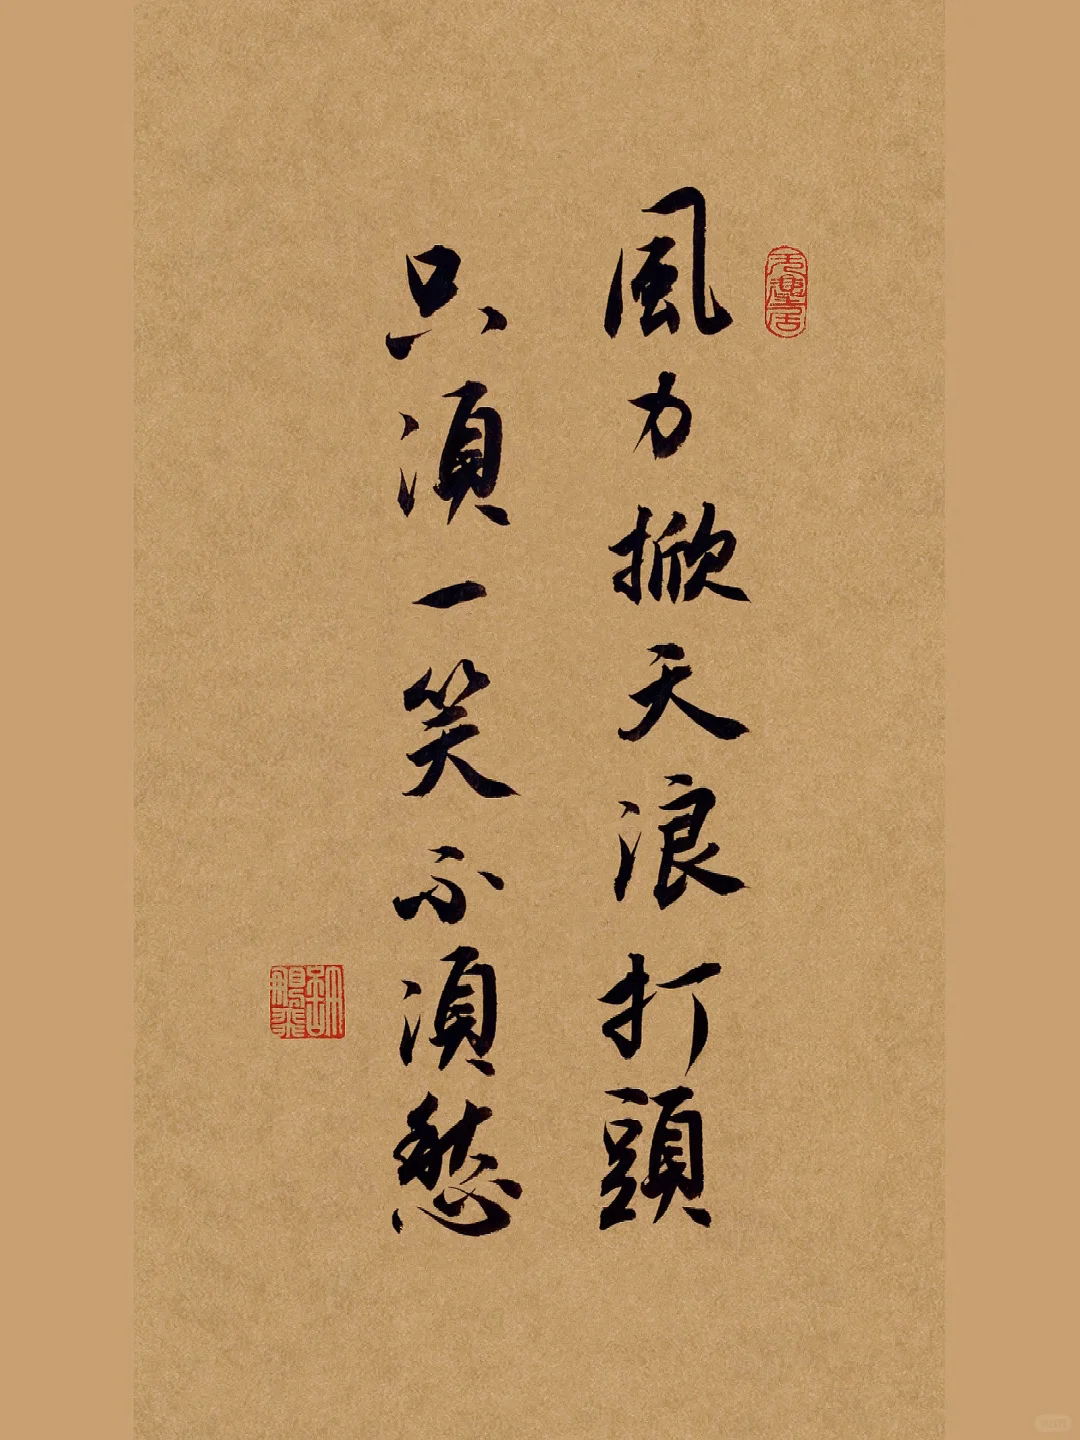 風力掀天浪打頭
只須一笑不須愁